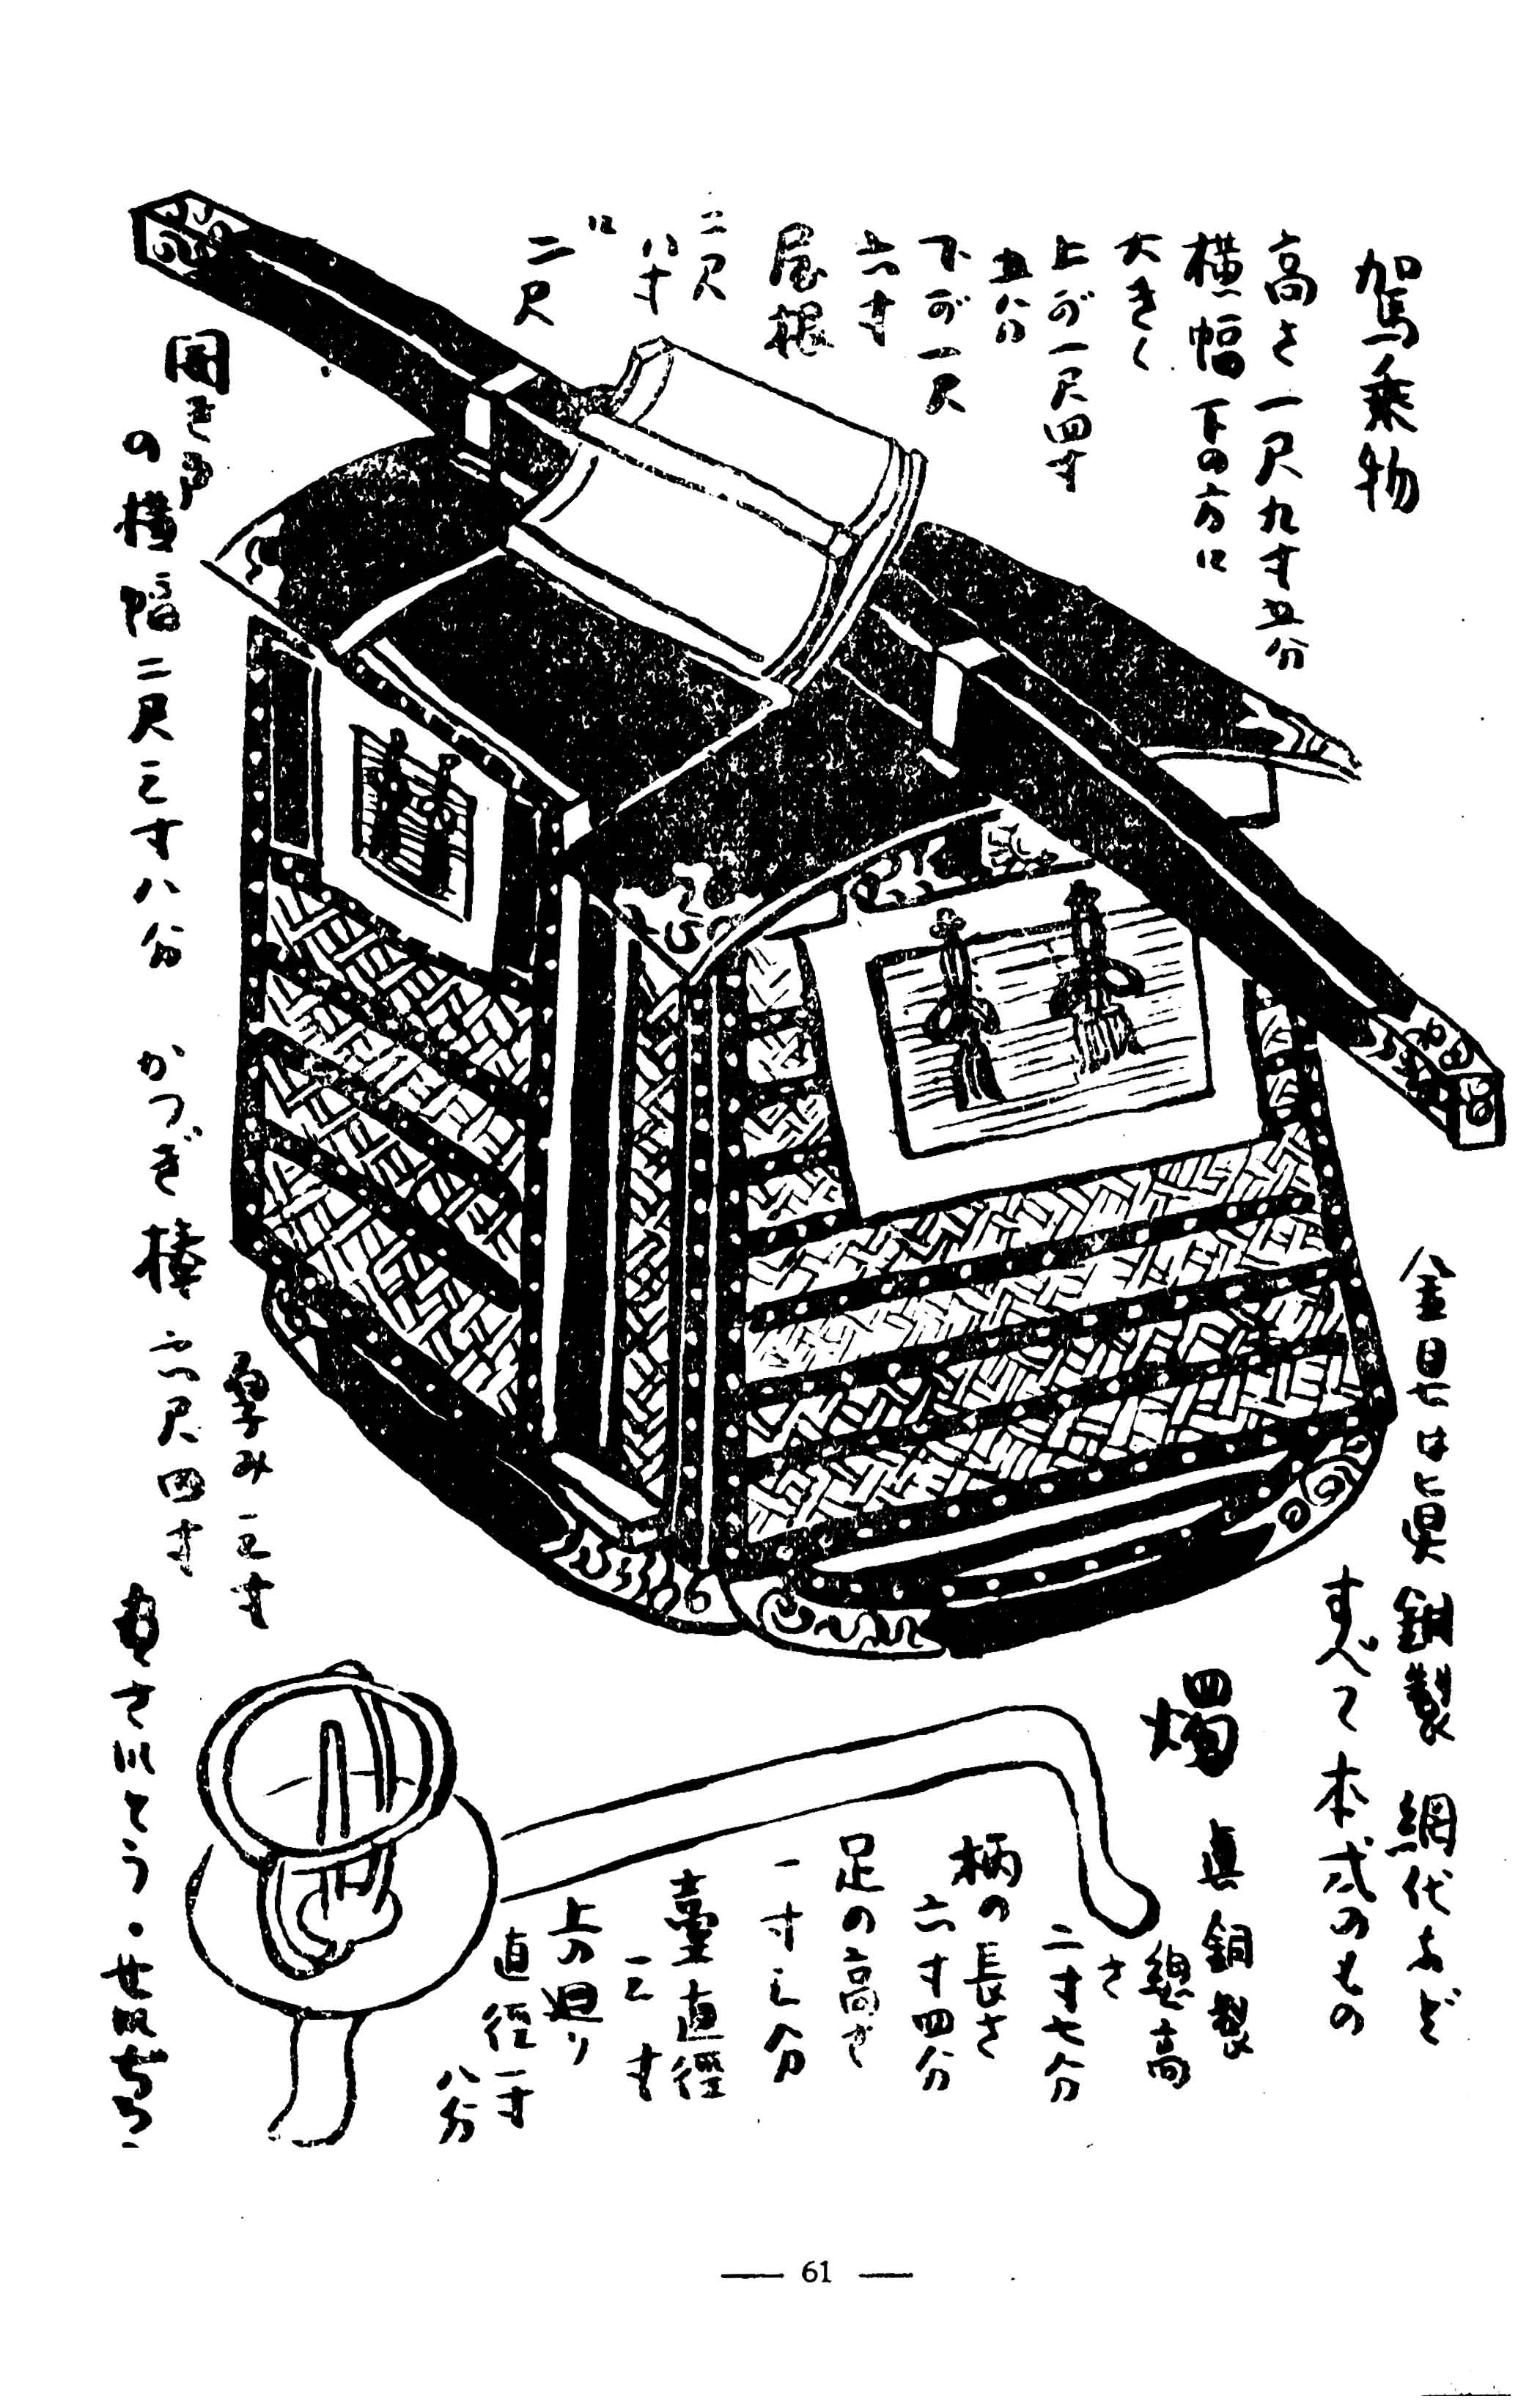 駕乗物
高さ一尺九寸五分
横幅下の方に
大きく
上が一尺四寸
五分
下が一尺
六寸
屋根
二尺
八寸
に
二尺
開き戸
の横幅二尺三寸八分
かつぎ棒六尺四寸
厚み三寸
金具は真銅製 網代など
すべて本式のもの
燭 真銅製
総高
さ
二寸七分
柄の長さ
六寸四分
足の高さ
一寸三分
臺直徑
三寸
上の廻り
直徑一寸
八分
— 61 —